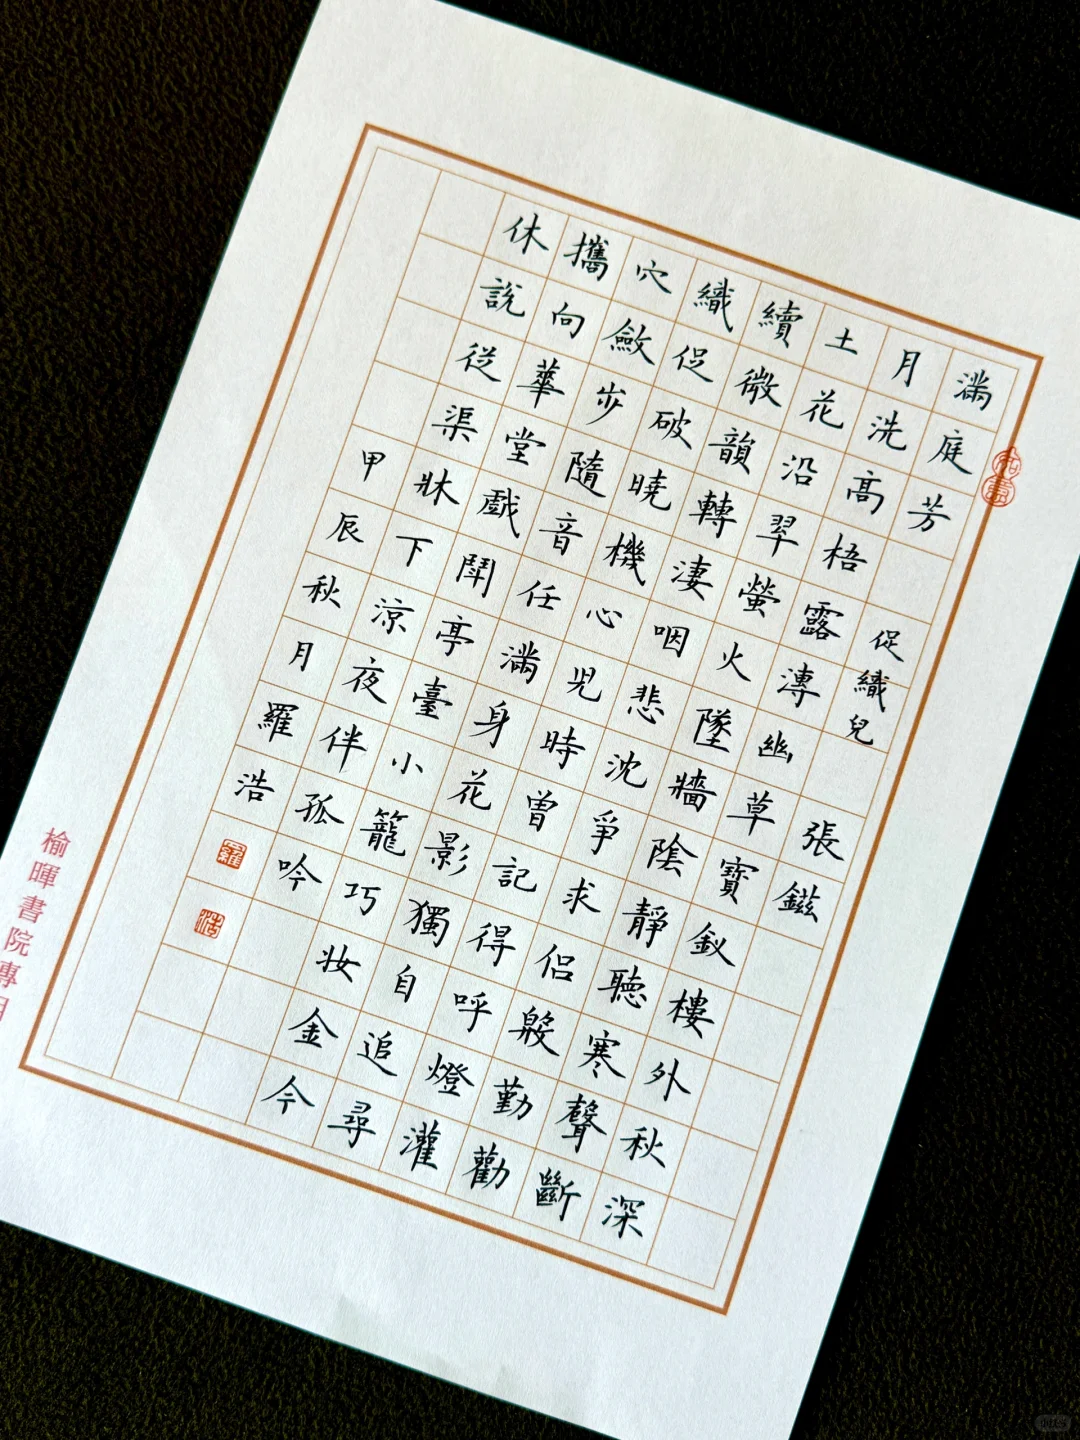 滿庭芳 促織兒 張鎡
月洗高梧露漙幽草寶釵樓外秋深
土花沿翠螢火墜牆陰靜聽寒聲斷
續微韻轉淒咽悲沈爭求侶殷勤勸
織促破曉機心兒時曾記得呼燈灌
穴斂步隨音任滿身花影獨自追尋
攜向華堂戲鬪亭臺小籠巧妝金今
休說從渠牀下涼夜伴孤吟
甲辰秋月羅浩
羅
浩
榆暉書院專用